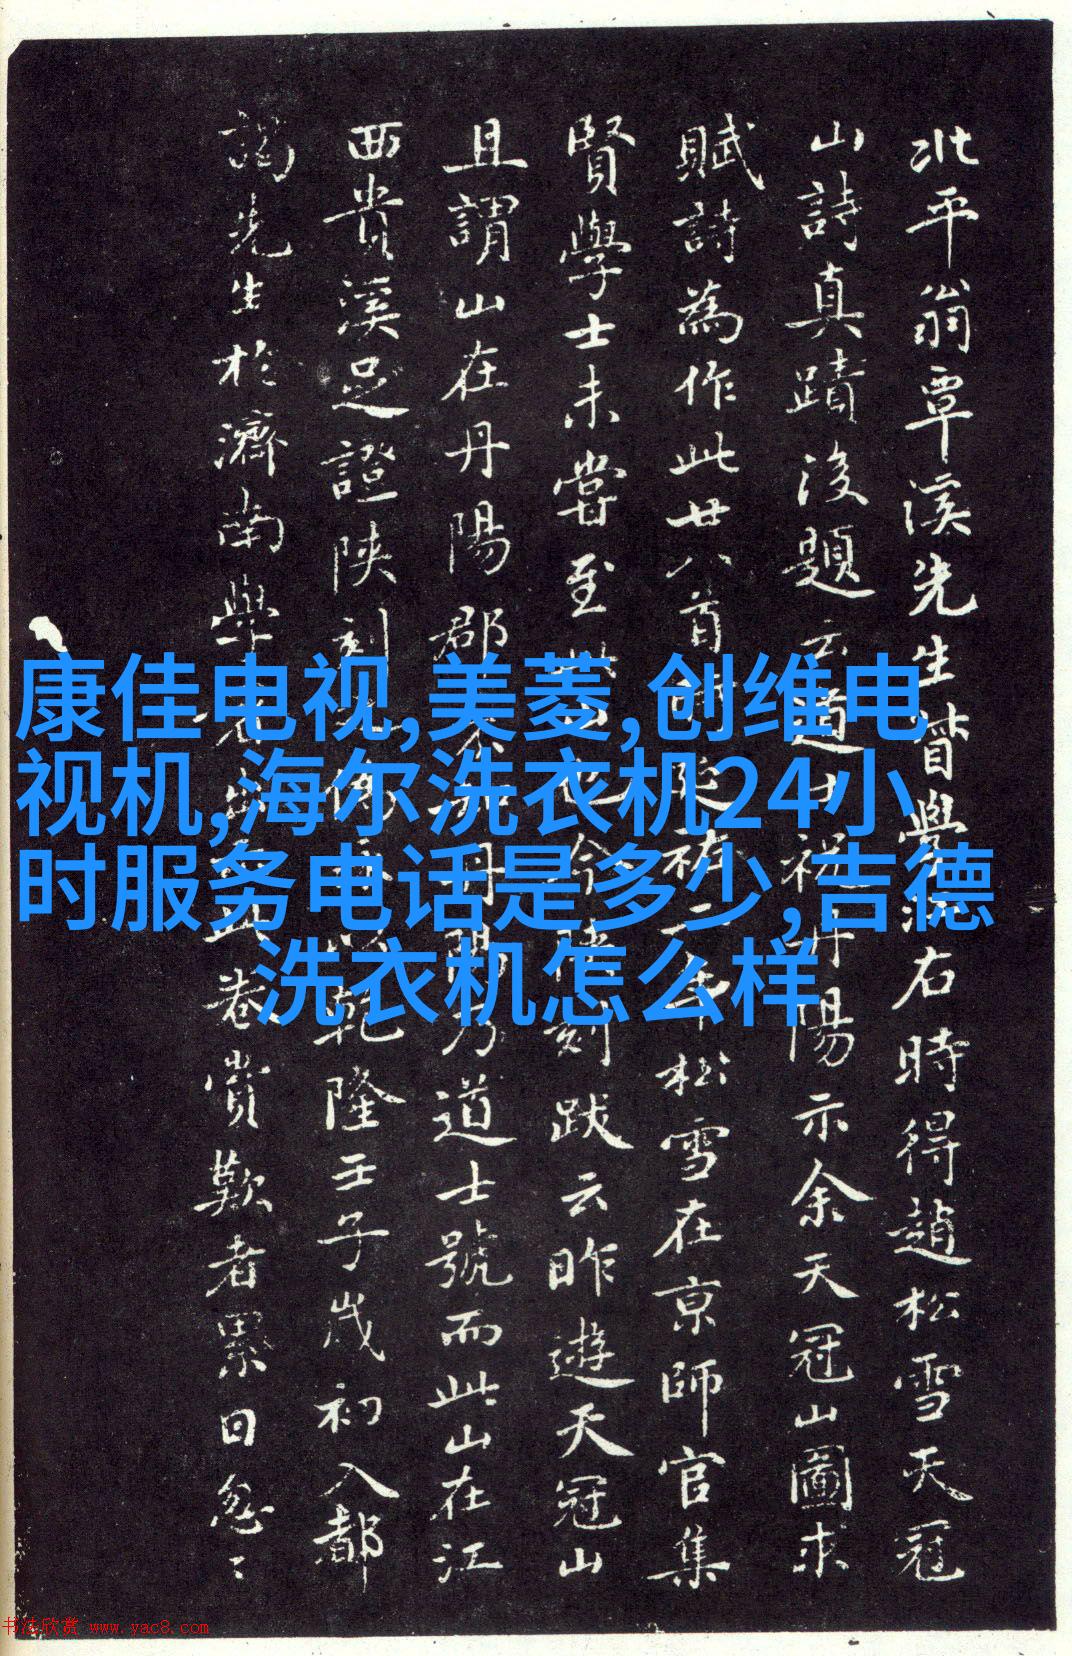 北平翁覃溪先生督學江右時得趙松雪天冠
山詩真蹟後題云道士祝丹陽示余天冠山圖求
賦詩為作此廿八首延祐二年松雪在京師官集
賢學士未嘗至此山也今陝刻跋云昨遊天冠山
且謂山在丹陽郡丹陽乃道士號而此山在江
西貴溪足證陝刻偽乾隆壬子歲初入都
謁先生於濟南學此卷賞歎者累日怱〻
康佳电视,美菱,创维电
视机,海尔洗衣机24小
时服务电话是多少,吉德
洗衣机怎么样
书法欣赏 www.yac8.com